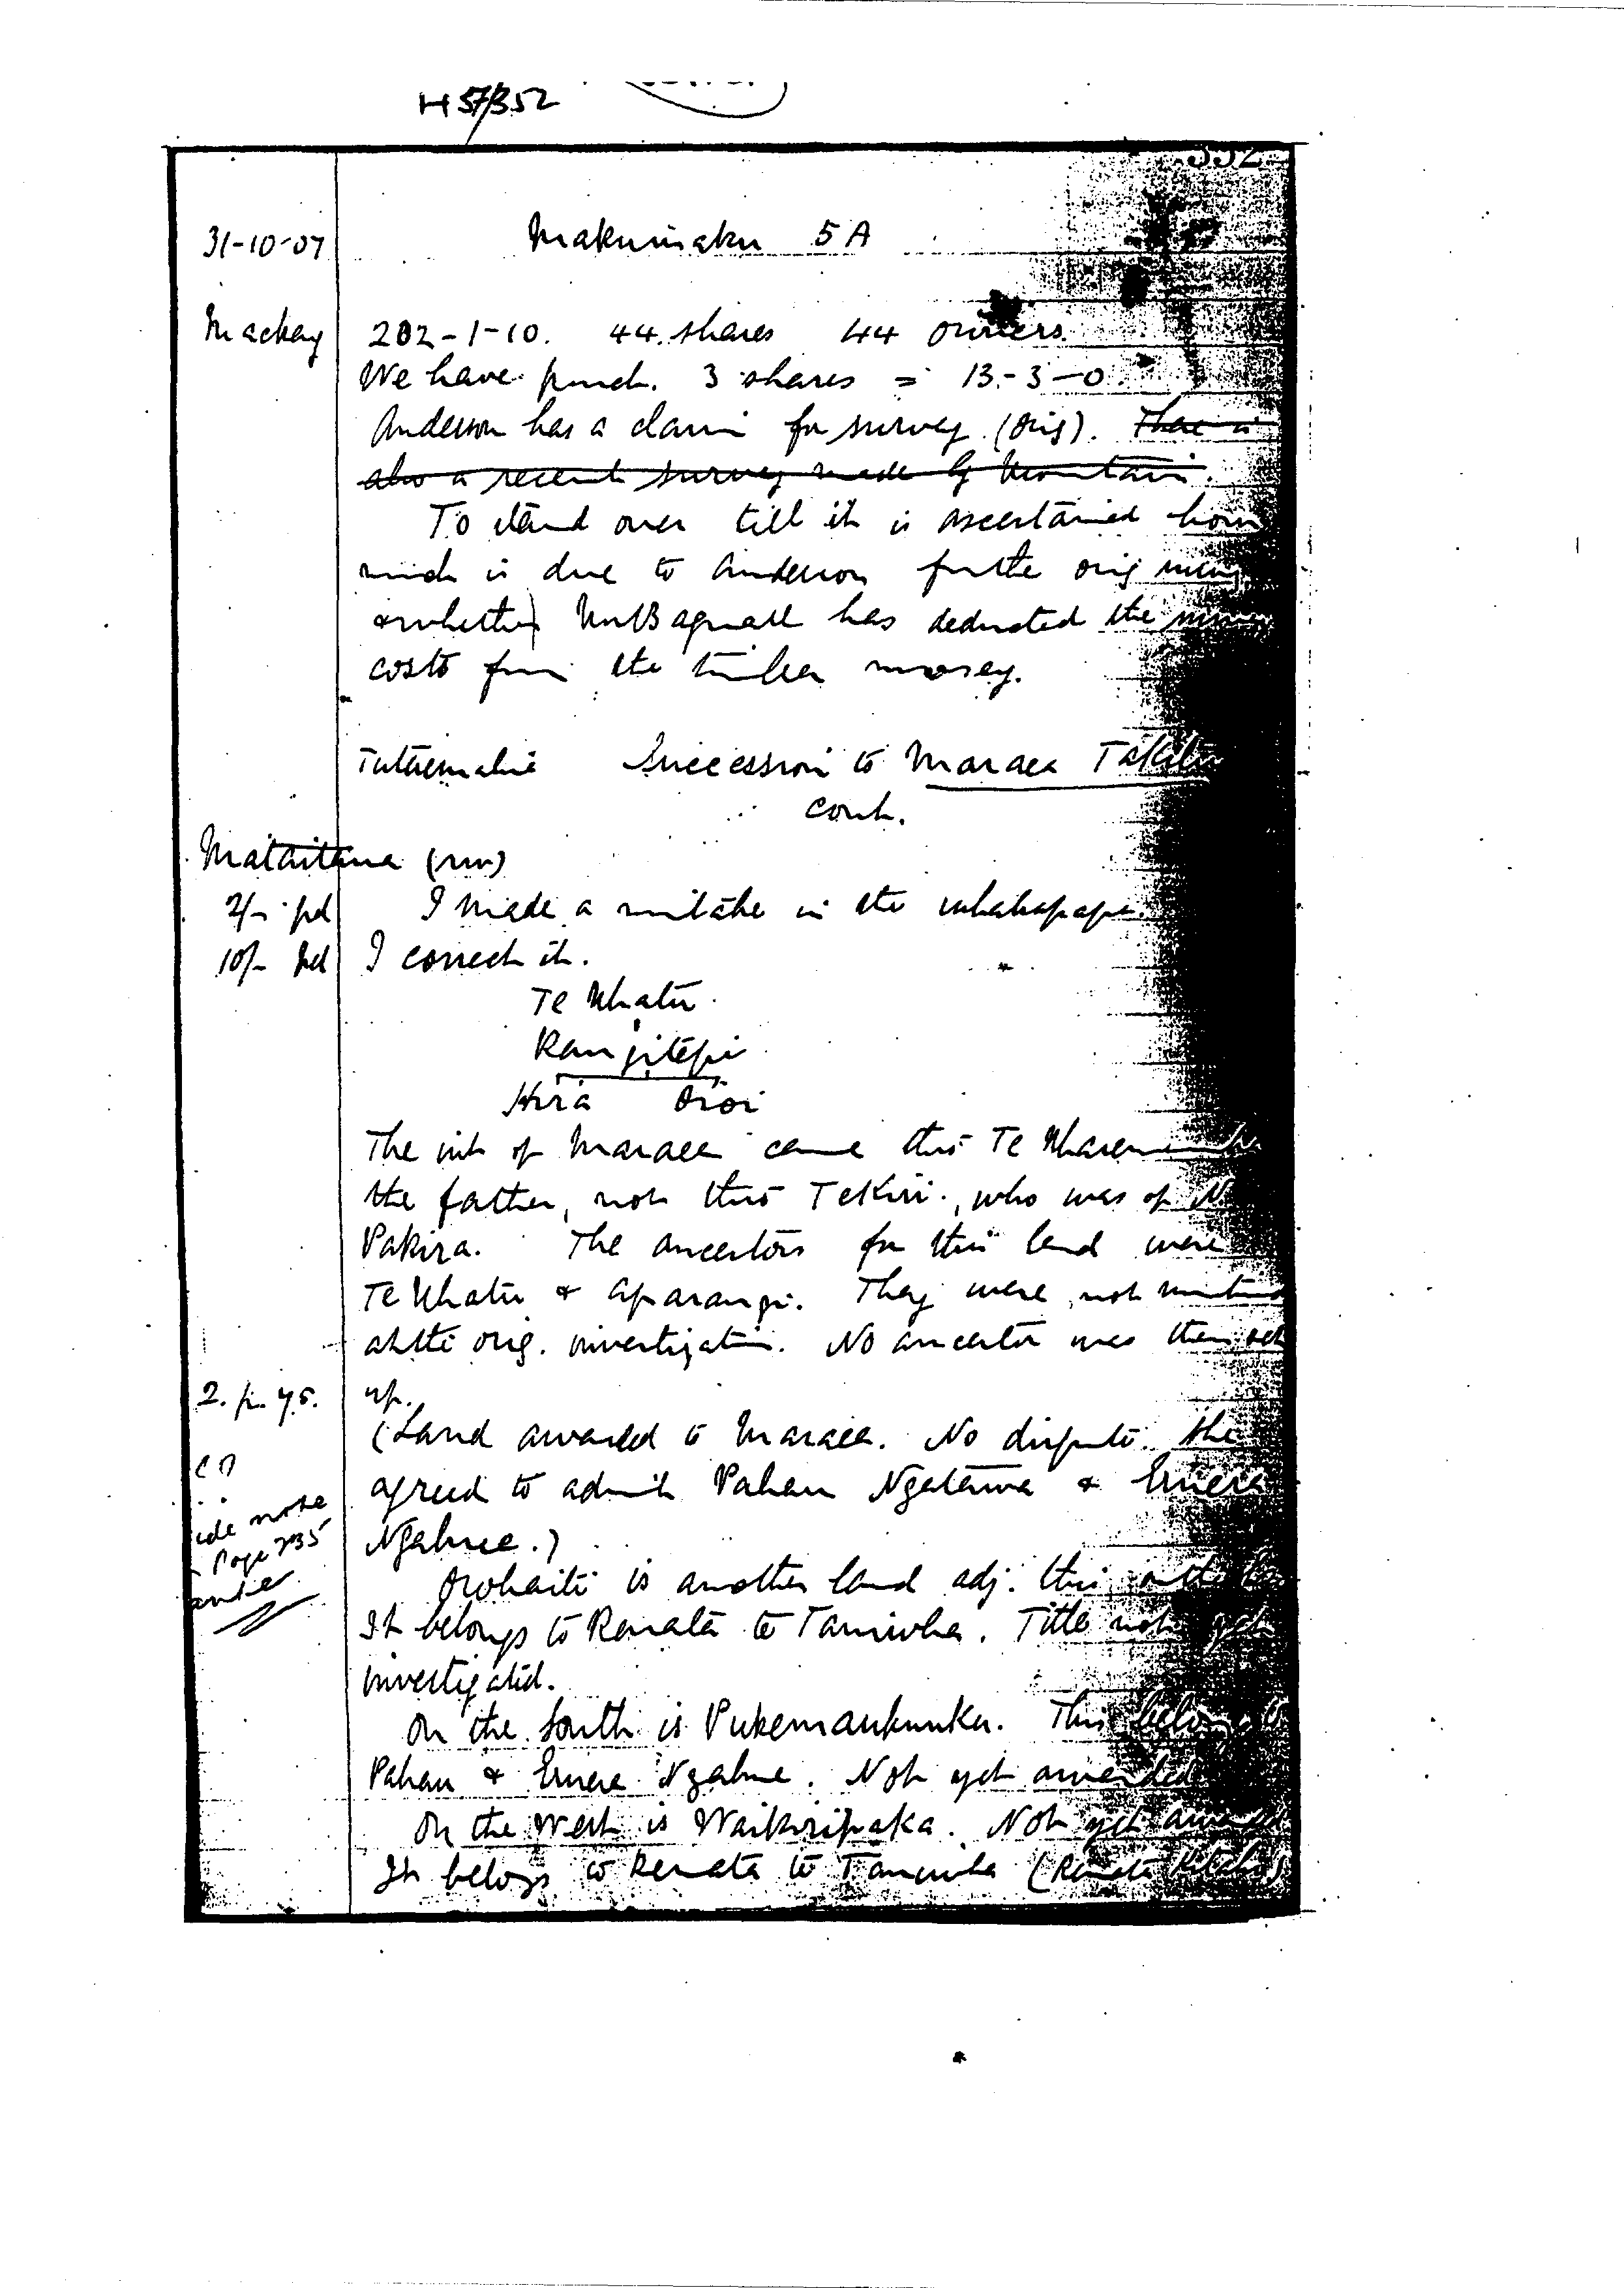 H 57/352
352
31-10-07 Makumaku 5A
Mackay 202-1-10. 44 shares 44 owners.
We have purch. 3 shares = 13-3-0.
Anderson has a claim for survey (orig). There is
also a recent survey made by Mountain.
To stand over till it is ascertained how
much is due to Anderson for the orig
& whether Mr Bagnall has deducted the
costs from the timber money.
Succession to Maraea
cont.
Mataitaua (rm)
2/- pd I made a mistake in the whakapapa.
10/- pd I correct it.
Te Whatu
Rangitepi
Hira Oroi
The int of Maraea came thro Te
the father, not thro Te Kiri, who was of N
Pakira. The ancestors for this land were
Te Whatu & Aparangi. They were not
at the orig. investigation. No ancestor was then set
2. p. 45. up.
(Land awarded to Maraea. No dispute. She
agreed to admit Pahau Ngatawa & Emere
Ngahue.)
ide note
Page 235
ante
Owhaiti is another land adj. this
It belongs to Renata te Taniwha. Title not yet
investigated.
On the South is Pukemaukuuku. This belongs to
Pahau & Emere Ngahue. Not yet awarded
On the West is Waikiripaka. Not yet
It belongs to Renata te Taniwha (Renata